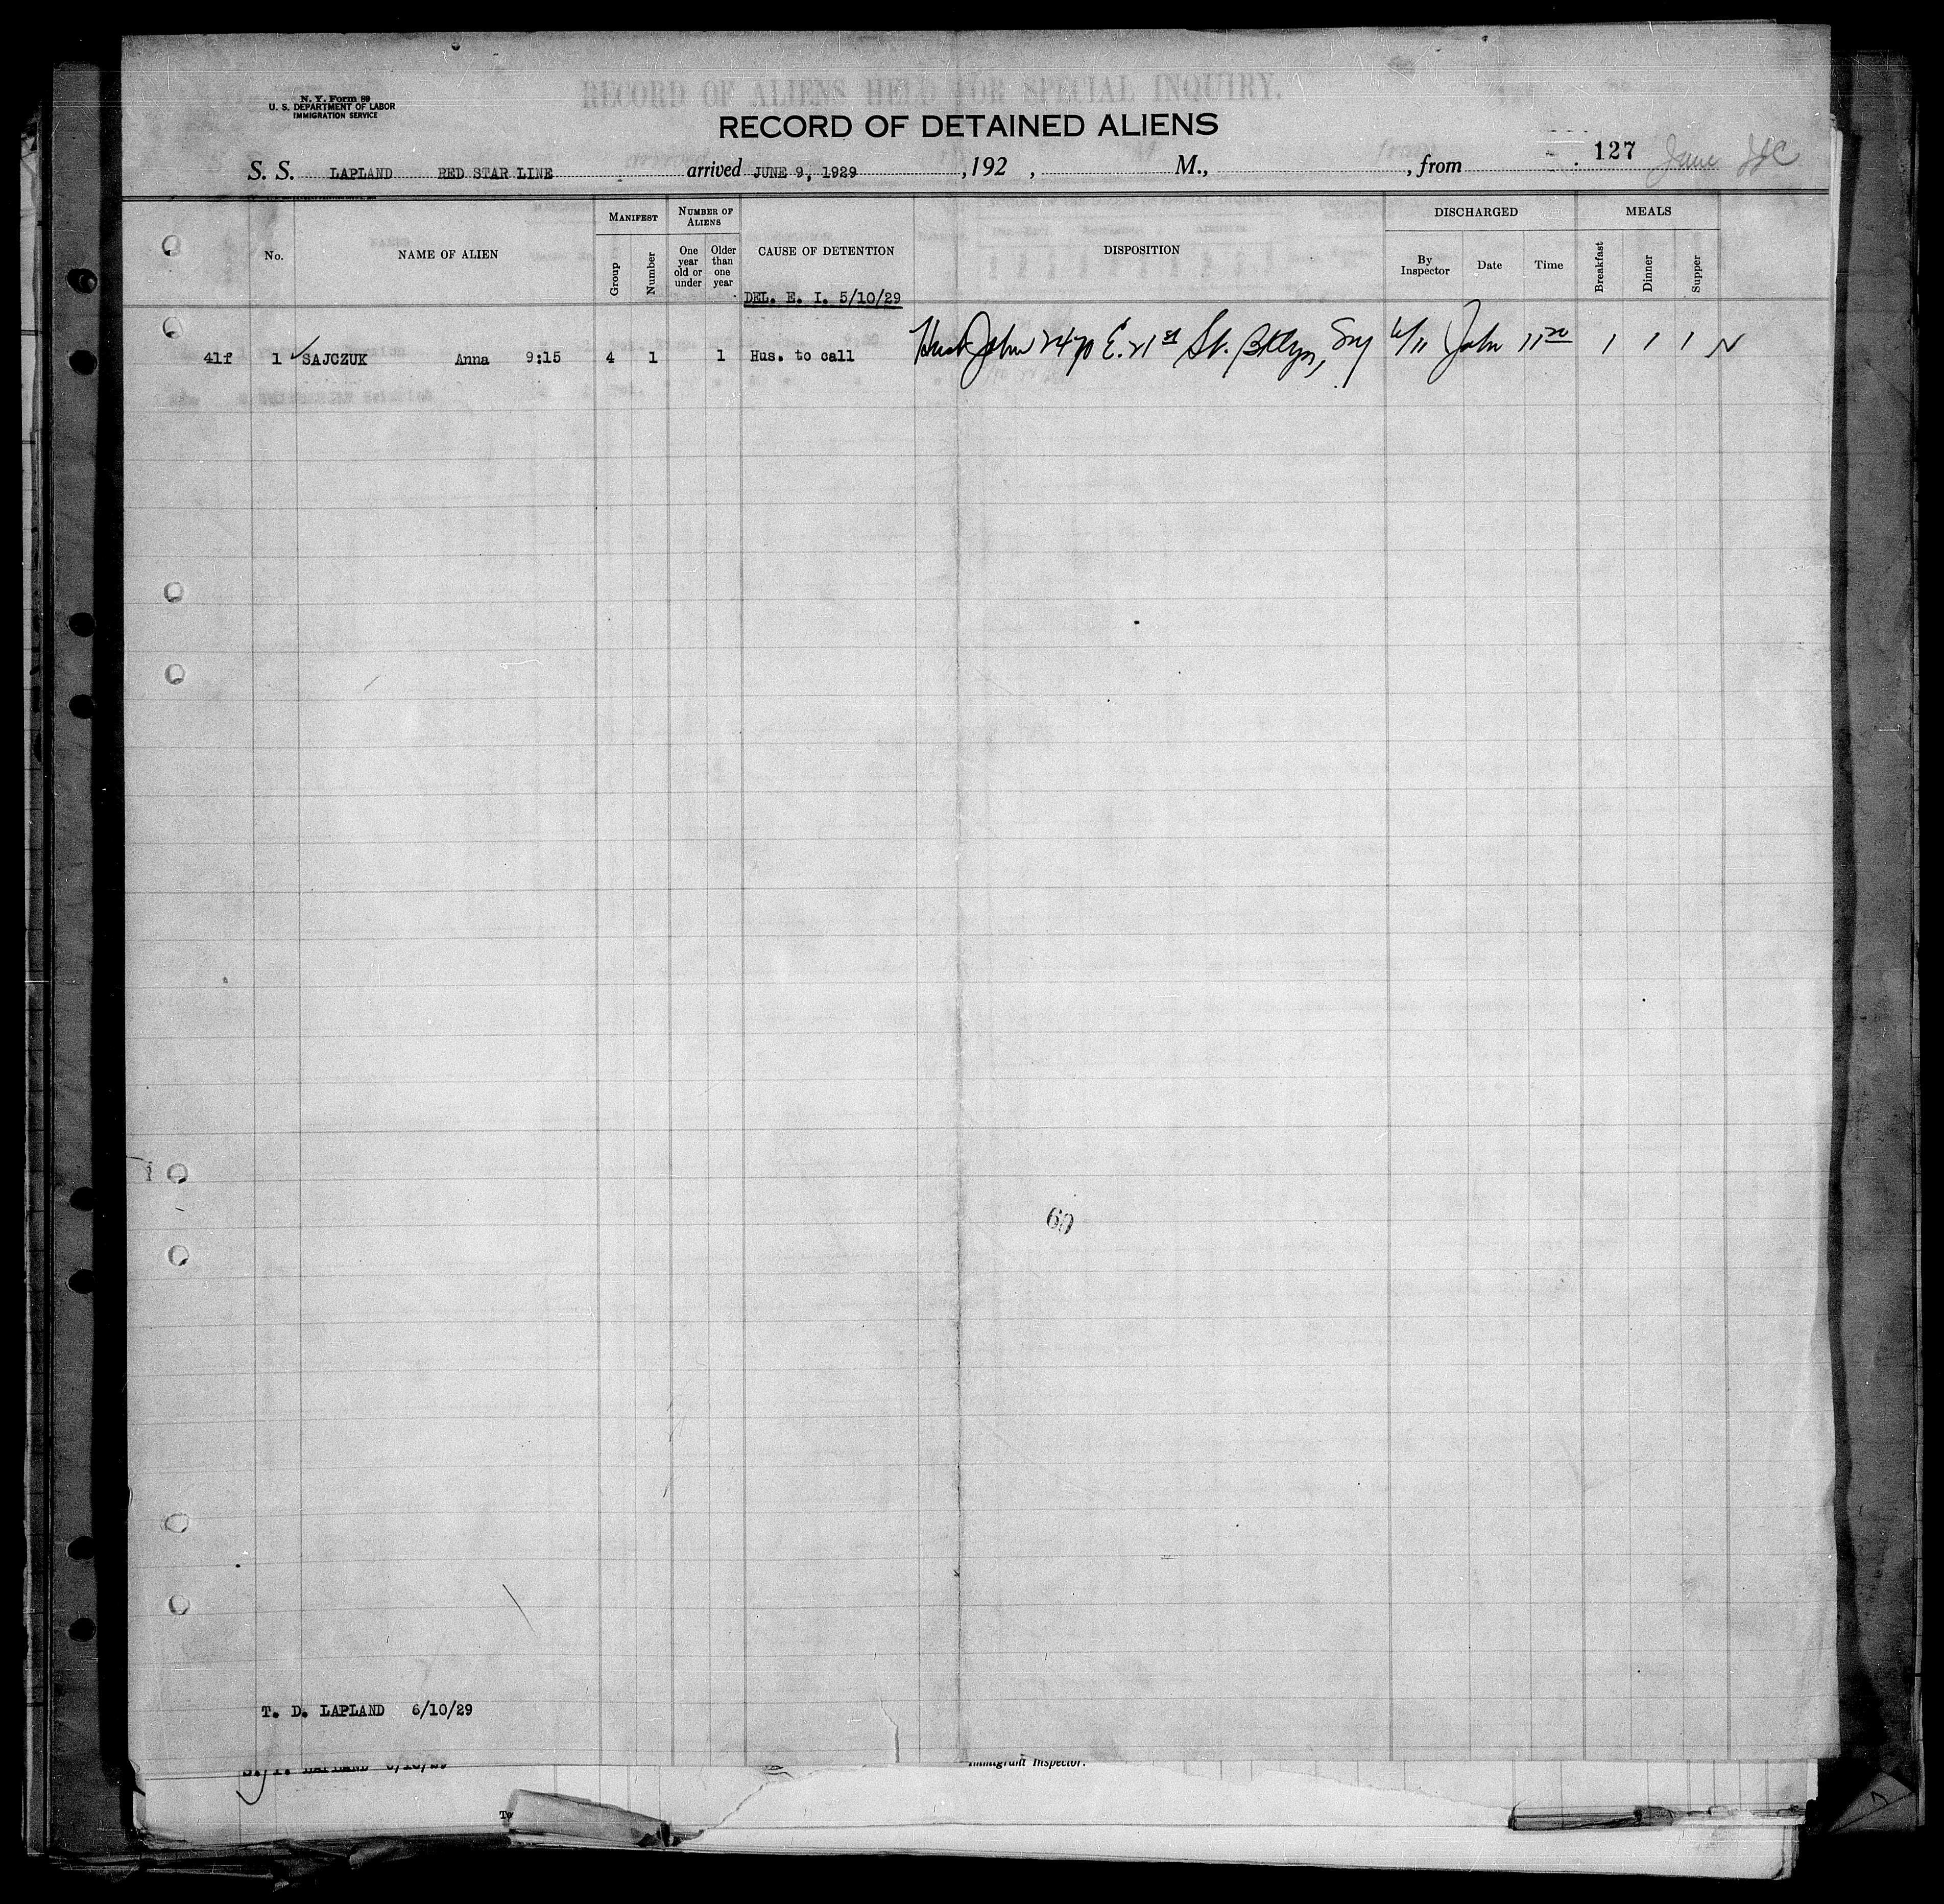 RECORD OF ALIENS HELD FOR SPECIAL INQUIRY.
N. Y. Form 89
U. S. DEPARTMENT OF LABOR
IMMIGRATION SERVICE
RECORD OF DETAINED ALIENS
127 June
S. S. LAPLAND RED STAR LINE arrived JUNE 9, 1929 , 192 , M., , from
No. NAME OF ALIEN MANIFEST Group Number NUMBER OF ALIENS One year old or under Older than one year CAUSE OF DETENTION DISPOSITION DISCHARGED By Inspector Date Time MEALS Breakfast Dinner Supper
DEL. E. I. 5/10/29
41f 1 SAJCZUK Anna 9:15 4 1 1 Hus. to call Husb John 2470 E. 21st St. Bklyn, 6/11 John 11 20 1 1 1 N
60
T. D. LAPLAND 6/10/29
S. I. LAPLAND 6/10/29
Immigrant Inspector.